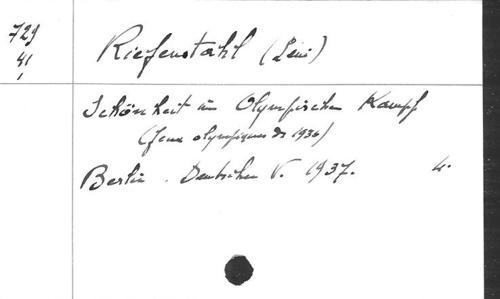 729
41
Riefenstahl (Leni)
Schönheit im Olympischen Kampf
(Jeux olympiques de 1936)
Berlin. Deutschen V. 1937. 4.